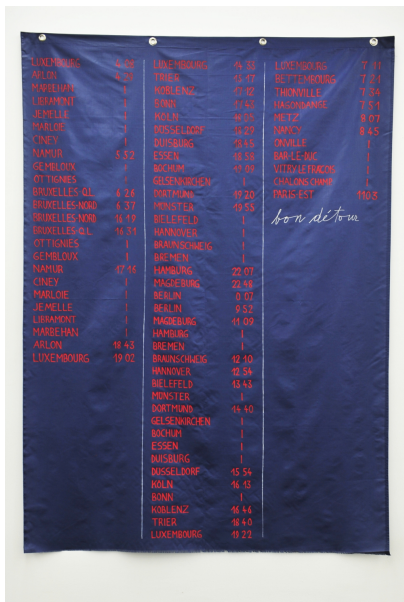 LUXEMBOURG 4 26
ARLON
MARBEHAN |
LIBRAMONT |
JEMELLE |
MARLOIE |
CINEY |
NAMUR 5 52
GEMBLOUX |
OTTIGNIES |
BRUXELLES-Q.L. 6 26
BRUXELLES-NORD 6 37
BRUXELLES-NORD 16 19
BRUXELLES-Q.L. 16 31
OTTIGNIES |
GEMBLOUX |
NAMUR 17 16
CINEY |
MARLOIE |
JEMELLE |
LIBRAMONT |
MARBEHAN |
ARLON 18 43
LUXEMBOURG 19 02
LUXEMBOURG 14 33
TRIER 15 17
KOBLENZ
BONN
KÖLN
DÜSSELDORF 18 29
DUISBURG 18 45
ESSEN 18 58
BOCHUM 17 09
GELSENKIRCHEN |
DORTMUND 19 20
MÜNSTER 19 55
BIELEFELD |
HANNOVER |
BRAUNSCHWEIG |
BREMEN |
HAMBURG 22 07
MAGDEBURG 22 48
BERLIN 0 07
BERLIN 9 52
MAGDEBURG 11 09
HAMBURG |
BREMEN |
BRAUNSCHWEIG 12 10
HANNOVER 12 54
BIELEFELD 13 43
MÜNSTER |
DORTMUND 14 40
GELSENKIRCHEN |
BOCHUM |
ESSEN |
DUISBURG |
DÜSSELDORF 15 54
KÖLN 16 13
BONN |
KOBLENZ 16 46
TRIER 18 40
LUXEMBOURG 19 22
LUXEMBOURG 7 11
BETTEMBOURG 7 21
THIONVILLE 7 34
HAGONDANGE 7 51
METZ 8 07
NANCY 8 45
ONVILLE |
BAR-LE-DUC |
VITRY LE FRANÇOIS |
CHALONS CHAMP |
PARIS-EST 11 03
bon détour